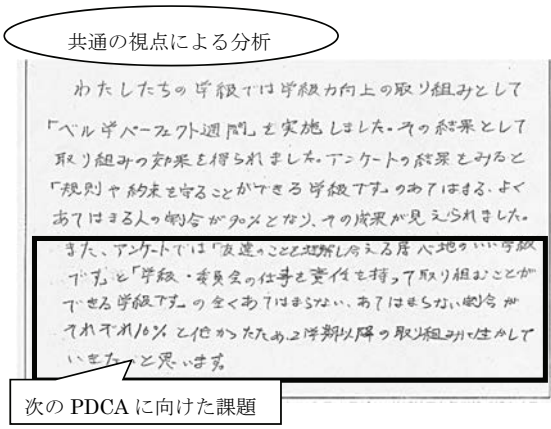 共通の視点による分析
わたしたちの学級では学級力向上の取り組みとして
「ベル学パーフェクト週間」を実施しました。その結果として
取り組みの効果を得られました。アンケートの結果をみると
「規則や約束を守ることができる学級です。」のあてはまる、よく
あてはまる人の割合が90%となり、その成果が見えられました。
また、アンケートでは「友達のことを理解し合える居心地のいい学級
です。」と「学級・委員会の仕事を責任を持って取り組むことが
できる学級です。」の全くあてはまらない、あてはまらない割合が
それぞれ10%と低かったため、2学期以降の取り組みに生かして
いきたいと思います。
次の PDCA に向けた課題